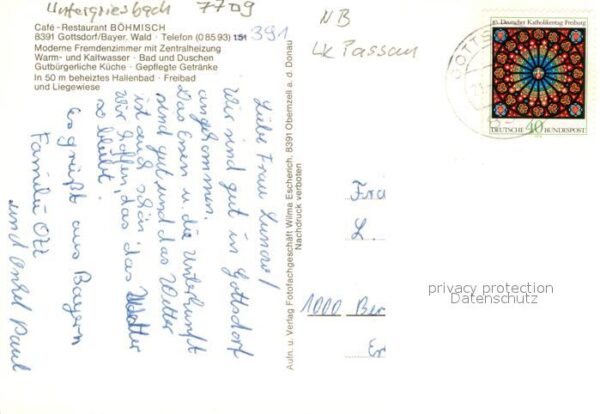 Untergriesbach 7709
Café - Restaurant BÖHMISCH
8391 Gottsdorf/Bayer. Wald · Telefon (0 85 93) 151 391
Moderne Fremdenzimmer mit Zentralheizung
Warm- und Kaltwasser · Bad und Duschen
Gutbürgerliche Küche · Gepflegte Getränke
In 50 m beheiztes Hallenbad · Freibad
und Liegewiese
Liebe Frau
Wir sind gut in Gottsdorf
angekommen.
Das Essen u. die Unterkunft
sind gut und das Wetter
ist auch schön.
Wir hoffen, das das Wetter
so bleibt.
Es grüßt aus Bayern
Familie Ott
und Onkel Paul
Aufn. u. Verlag Fotofachgeschäft Wilma Escherich, 8391 Obernzell a. d. Donau
Nachdruck verboten
NB
LK Passau
85. Deutscher Katholikentag Freiburg
DEUTSCHE 40 BUNDESPOST
GOTTS
Fra
L.
1000 Ber
privacy protection
Datenschutz